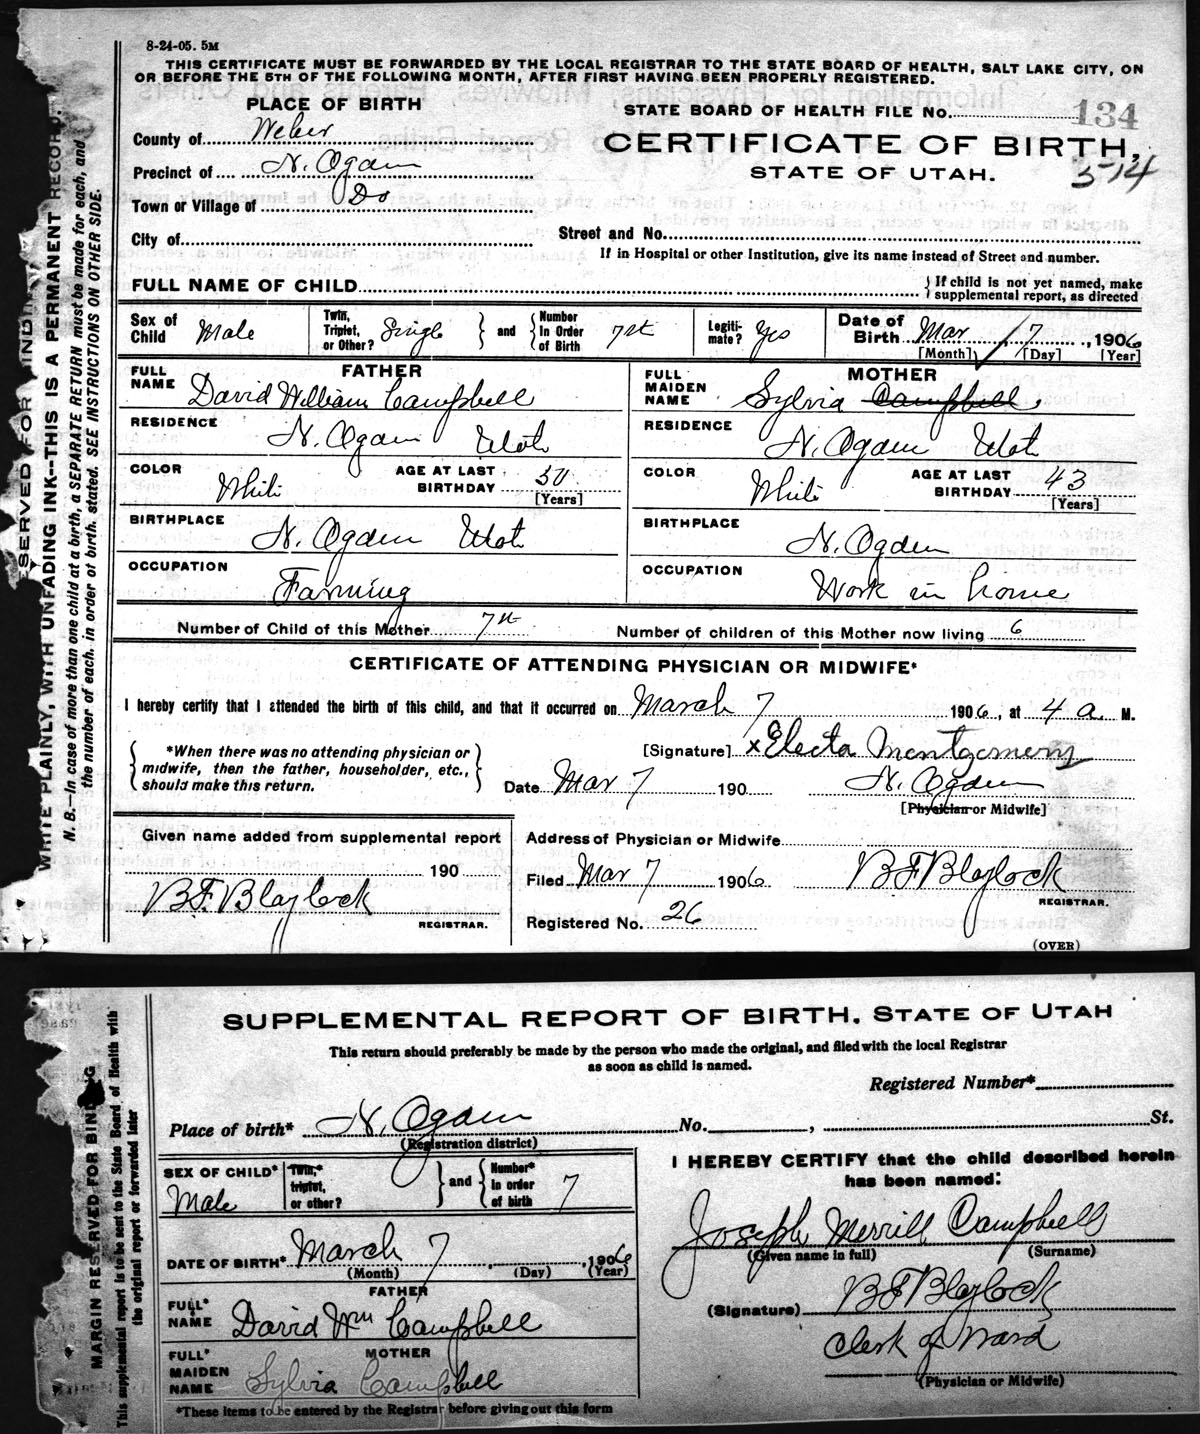 8-24-05. 5M
THIS CERTIFICATE MUST BE FORWARDED BY THE LOCAL REGISTRAR TO THE STATE BOARD OF HEALTH, SALT LAKE CITY, ON
OR BEFORE THE 5TH OF THE FOLLOWING MONTH, AFTER FIRST HAVING BEEN PROPERLY REGISTERED.
PLACE OF BIRTH
STATE BOARD OF HEALTH FILE No. 134
County of Weber
CERTIFICATE OF BIRTH,
Precinct of N. Ogden
STATE OF UTAH.
5-14
Town or Village of Do
City of
Street and No.
If in Hospital or other Institution, give its name instead of Street and number.
FULL NAME OF CHILD
} If child is not yet named, make
supplemental report, as directed
Sex of Child Male
Twin, Triplet, or Other? Single } and { Number In Order of Birth 7th
Legiti-mate? Yes
Date of Birth Mar 7, 1906
[Month] [Day] [Year]
FATHER
FULL NAME David William Campbell
RESIDENCE N. Ogden Utah
COLOR White
AGE AT LAST BIRTHDAY 50
[Years]
BIRTHPLACE N. Ogden Utah
OCCUPATION Farming
MOTHER
FULL MAIDEN NAME Sylvia Campbell
RESIDENCE N. Ogden Utah
COLOR White
AGE AT LAST BIRTHDAY 43
[Years]
BIRTHPLACE N. Ogden
OCCUPATION Work in home
Number of Child of this Mother 7th
Number of children of this Mother now living 6
CERTIFICATE OF ATTENDING PHYSICIAN OR MIDWIFE*
I hereby certify that I attended the birth of this child, and that it occurred on March 7 1906, at 4 a. M.
{ *When there was no attending physician or
midwife, then the father, householder, etc.,
should make this return. }
[Signature] x Electa Montgomery
Date Mar 7 190
N. Ogden
[Physician or Midwife]
Given name added from supplemental report
190
B.F. Blaylock
REGISTRAR.
Address of Physician or Midwife
Filed Mar 7 1906
B F Blaylock
REGISTRAR.
Registered No. 26
(OVER)
WRITE PLAINLY, WITH UNFADING INK--THIS IS A PERMANENT RECORD
N. B.—In case of more than one child at a birth, a SEPARATE RETURN must be made for each, and
the number of each, in order of birth, stated. SEE INSTRUCTIONS ON OTHER SIDE.
SUPPLEMENTAL REPORT OF BIRTH. STATE OF UTAH
This return should preferably be made by the person who made the original, and filed with the local Registrar
as soon as child is named.
Registered Number*
Place of birth* N. Ogden No. , St.
(Registration district)
SEX OF CHILD* Male
Twin,* triplet, or other? } and { Number* In order of birth 7
DATE OF BIRTH* March 7, 1906
(Month) (Day) (Year)
FATHER
FULL* NAME David Wm Campbell
MOTHER
FULL* MAIDEN NAME Sylvia Campbell
*These items to be entered by the Registrar before giving out this form
I HEREBY CERTIFY that the child described herein
has been named:
Joseph Merrill Campbell
(Given name in full) (Surname)
(Signature) B F Blaylock
Clerk of Ward
(Physician or Midwife)
MARGIN RESERVED FOR BINDING
This supplemental report is to be sent to the State Board of Health with
the original report or forwarded later